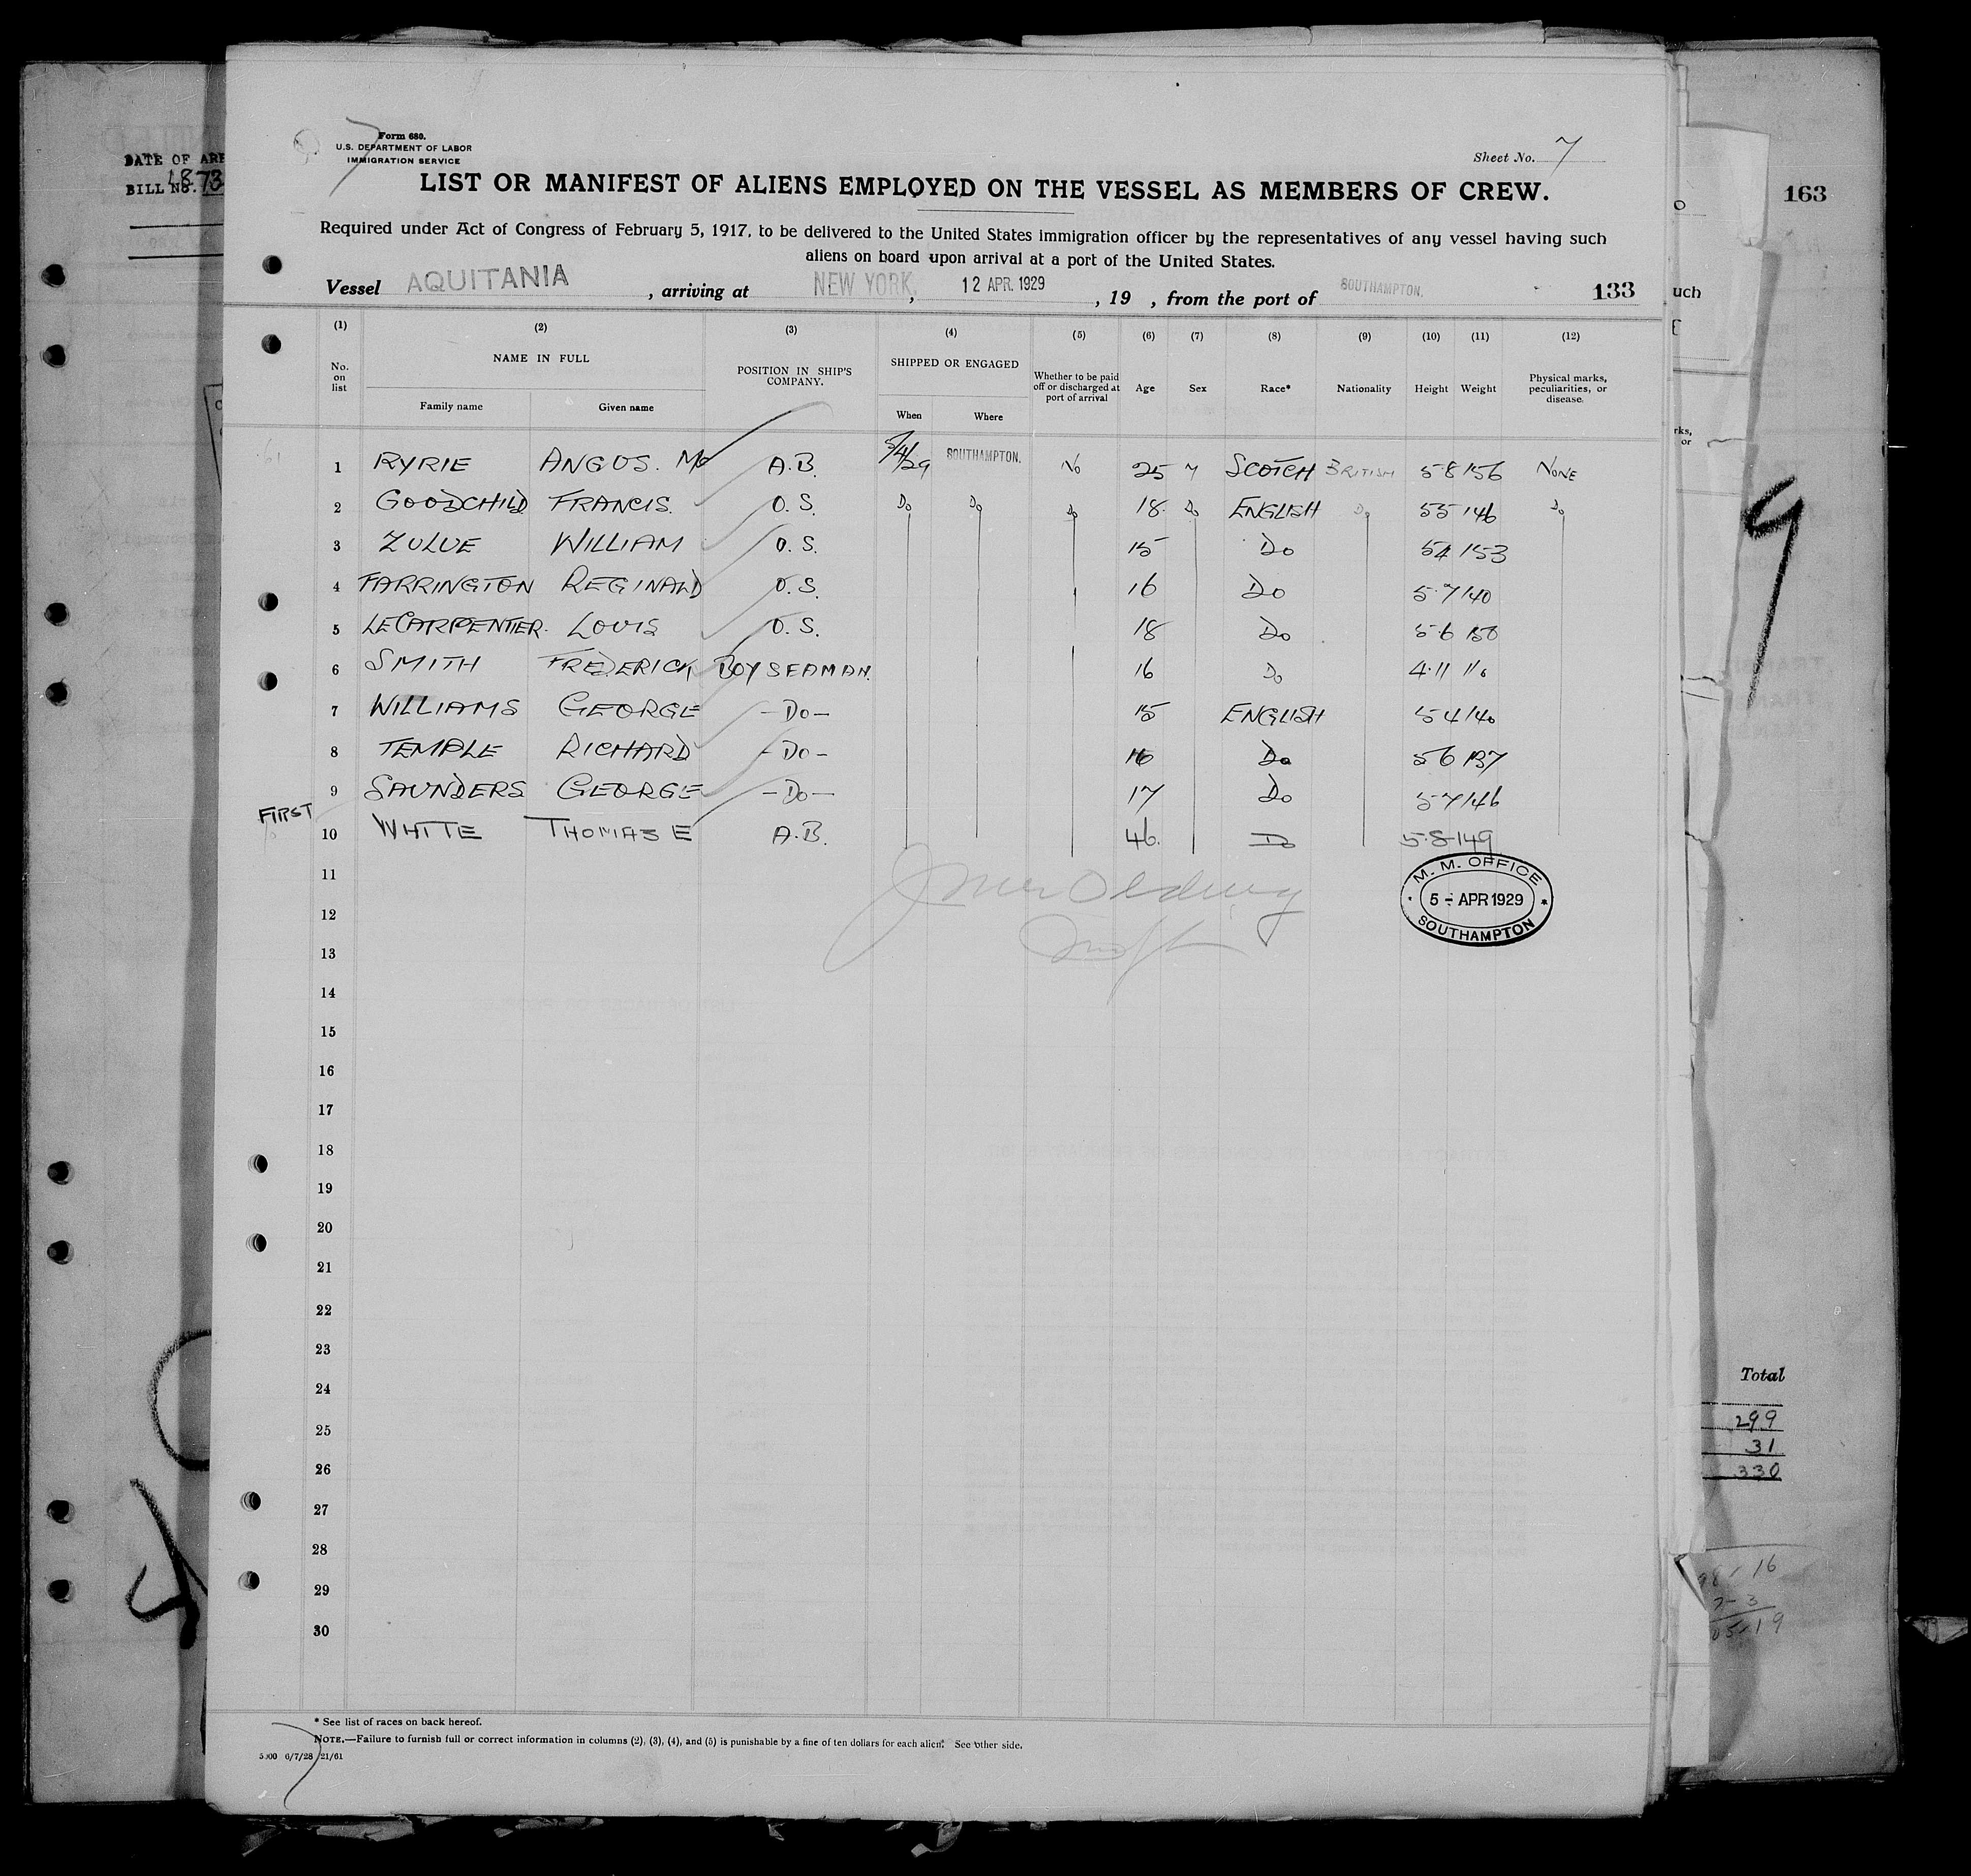 DATE OF ARR
BILL NO. 4873
Form 680.
U.S. DEPARTMENT OF LABOR
IMMIGRATION SERVICE
7
Sheet No. 7
LIST OR MANIFEST OF ALIENS EMPLOYED ON THE VESSEL AS MEMBERS OF CREW.
Required under Act of Congress of February 5, 1917, to be delivered to the United States immigration officer by the representatives of any vessel having such
aliens on board upon arrival at a port of the United States.
Vessel AQUITANIA , arriving at NEW YORK, , 12 APR. 1929 , 19 , from the port of SOUTHAMPTON. 133
(1) (2) (3) (4) (5) (6) (7) (8) (9) (10) (11) (12)
No. on list NAME IN FULL POSITION IN SHIP'S COMPANY. SHIPPED OR ENGAGED Whether to be paid off or discharged at port of arrival Age Sex Race* Nationality Height Weight Physical marks, peculiarities, or disease.
Family name Given name When Where
1 RYRIE ANGUS. Mc A.B. 5/4/29 SOUTHAMPTON. No 25 M SCOTCH BRITISH 5·8 156 NONE
2 GOODCHILD FRANCIS. O.S. Do Do Do 18. Do ENGLISH Do 55 146 Do
3 ZULUE WILLIAM O.S. 15 Do 54 153
4 FARRINGTON REGINALD O.S. 16 Do 5·7 140
5 LECARPENTIER. LOUIS O.S. 18 Do 5·6 150
6 SMITH FREDERICK BOY SEAMAN. 16 Do 4·11 116
7 WILLIAMS GEORGE -Do- 15 ENGLISH 5 4 140
8 TEMPLE RICHARD -Do- 16 Do 56 137
9 SAUNDERS GEORGE -Do- 17 Do 5·7 146
FIRST
10 WHITE THOMAS E A.B. 46. Do 5·8 149
M. M. OFFICE
5 - APR 1929
SOUTHAMPTON
11
12
13
14
15
16
17
18
19
20
21
22
23
24
25
26
27
28
29
30
* See list of races on back hereof.
NOTE.—Failure to furnish full or correct information in columns (2), (3), (4), and (5) is punishable by a fine of ten dollars for each alien. See other side.
5000 6/7/28 21/61
163
uch
rks,
or
9
Total
299
31
330